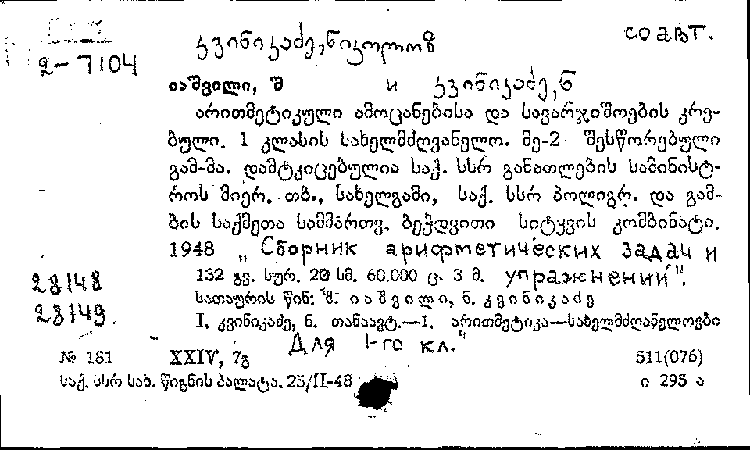 კვინიკაძე, ნიკოლოზ соавт.
2-7104
იაშვილი, შ и კვინიკაძე, ნ
არითმეტიკული ამოცანებისა და სავარჯიშოების კრე-
ბული. 1 კლასის სახელმძღვანელო. მე-2 შესწორებული
გამ-მა. დამტკიცებულია საქ. სსრ განათლების სამინისტ-
როს მიერ. თბ., სახელგამი, საქ. სსრ პოლიგრ. და გამ-
ბის საქმეთა სამმართვ. ბეჭდვითი სიტყვის კომბინატი.
1948 „Сборник арифметических задач и
132 გვ. სურ. 20 სმ. 60.000 ც. 3 მ. упражнений".
28148 სათაურის წინ: შ. იაშვილი, ნ. კვინიკაძე
28149. I. კვინიკაძე, ნ. თანაავტ.—1. არითმეტიკა—სახელმძღვანელოები
Для 1-го кл."
№ 181 XXIV, 7გ 511(076)
საქ. სსრ სახ. წიგნის პალატა. 25/II-48 ი 295 ა